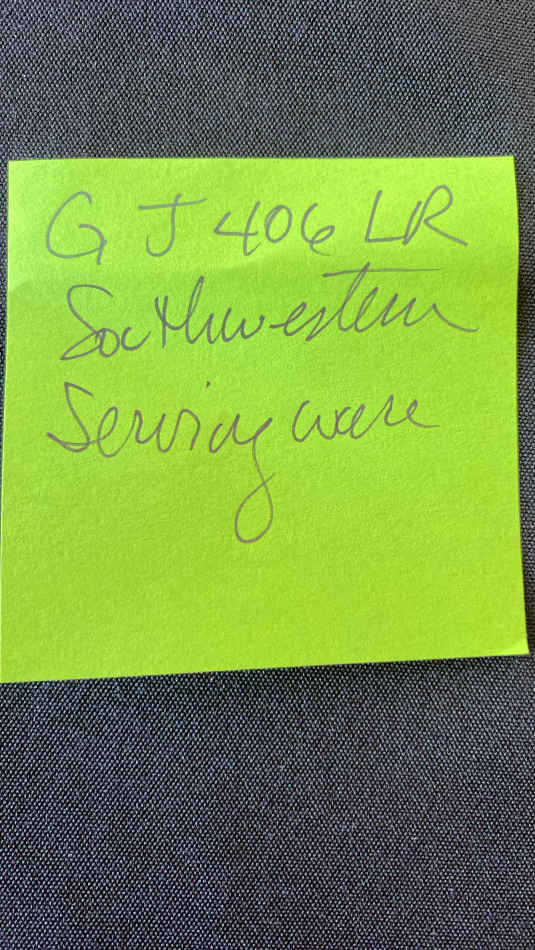 GJ 406 LR
Southwestern
Serving ware